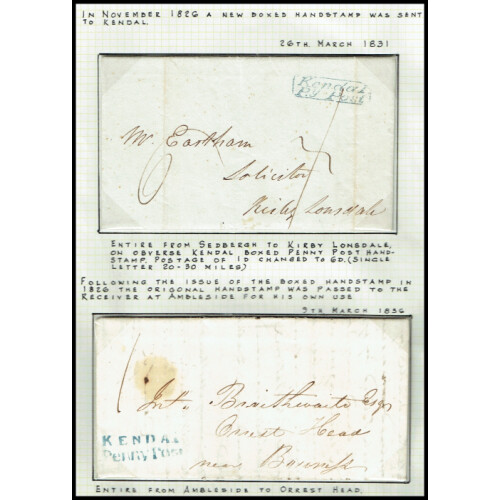 IN NOVEMBER 1826 A NEW BOXED HANDSTAMP WAS SENT
TO KENDAL.
26TH MARCH 1831
Kendal
Py Post
Mr Eastham
Solicitor
Kirby Lonsdale
ENTIRE FROM SEDBERGH TO KIRBY LONSDALE,
ON OBVERSE KENDAL BOXED PENNY POST HAND-
STAMP. POSTAGE OF 1D CHANGED TO 6D. (SINGLE
LETTER 20-30 MILES)
FOLLOWING THE ISSUE OF THE BOXED HANDSTAMP IN
1826 THE ORIGONAL HANDSTAMP WAS PASSED TO THE
RECEIVER AT AMBLESIDE FOR HIS OWN USE
9TH MARCH 1836
Braithwaite Esqr
Orrest Head
near Bowness
KENDAL
Penny Post
ENTIRE FROM AMBLESIDE TO ORREST HEAD.